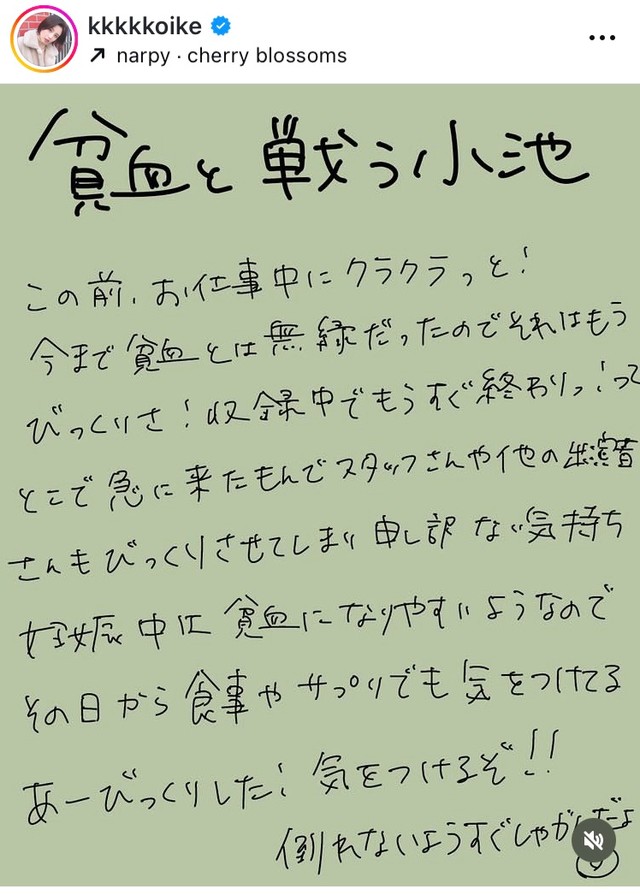 kkkkkoike
narpy · cherry blossoms
貧血と戦う小池
この前、お仕事中にクラクラっと！
今まで貧血とは無縁だったのでそれはもう
びっくりさ！収録中でもうすぐ終わりっ！って
とこで急に来たもんでスタッフさんや他の出演者
さんもびっくりさせてしまい申し訳ない気持ち
妊娠中は貧血になりやすいようなので
その日から食事やサプリでも気をつけてる
あーびっくりした！気をつけるぞ!!
倒れないようすぐしゃがんだよ